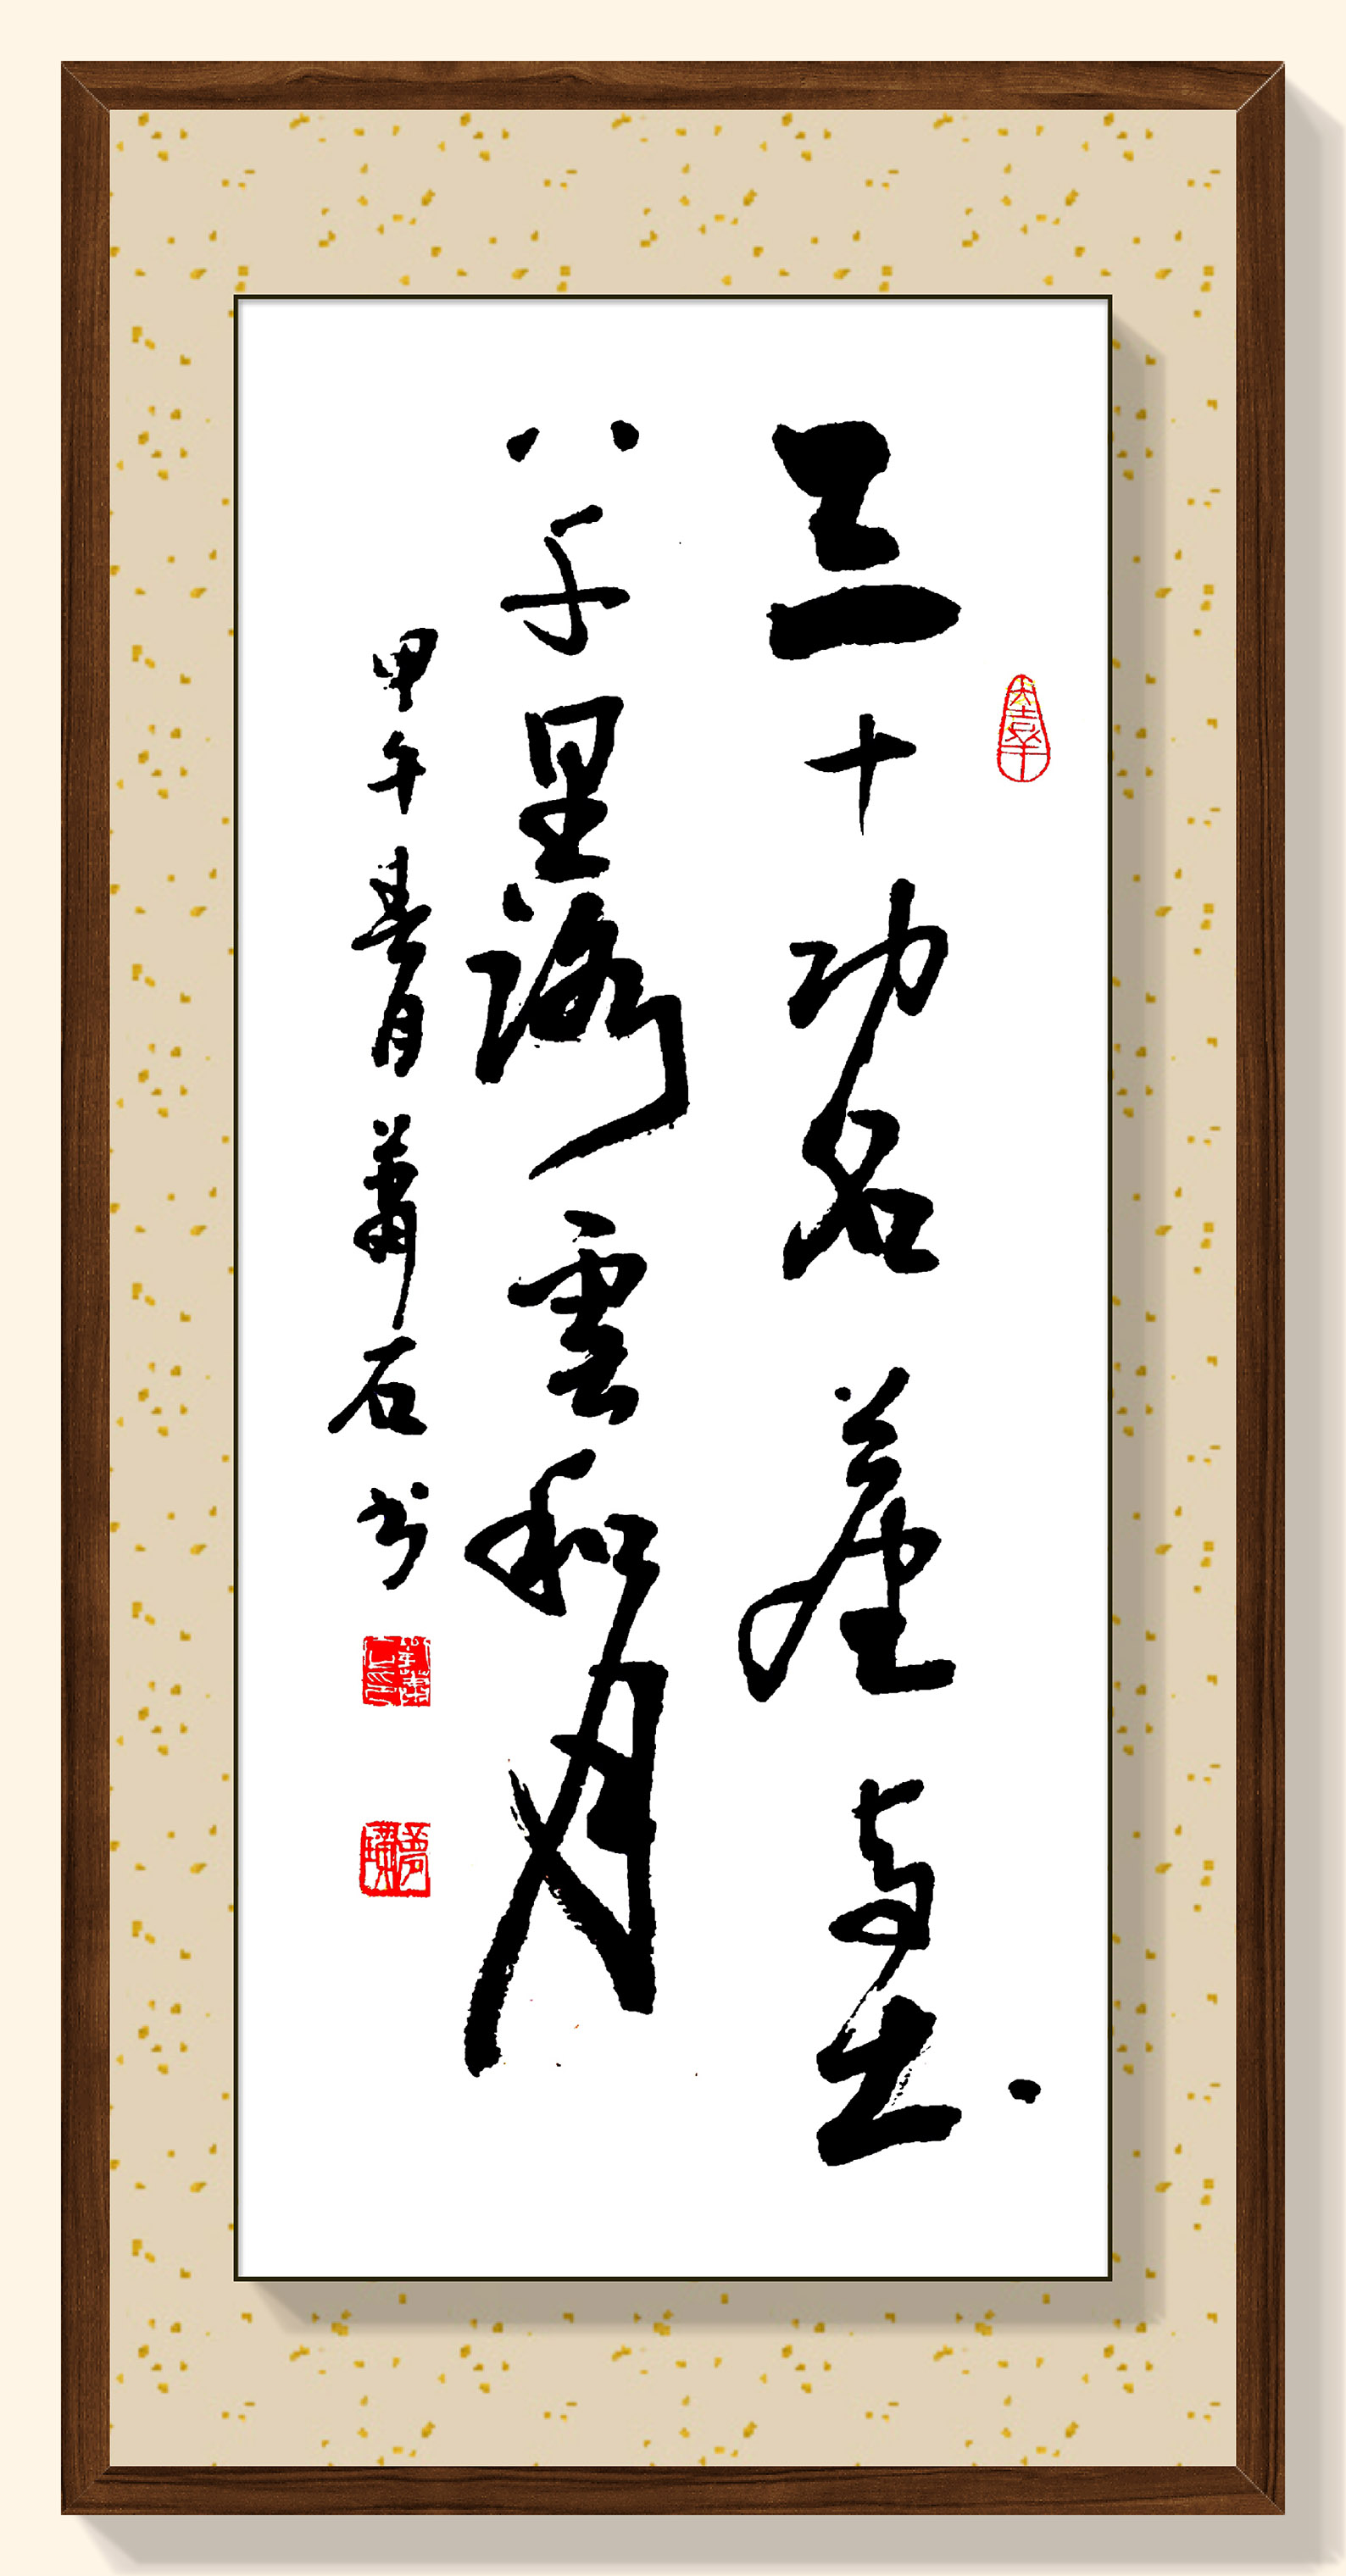 三十功名塵与土
八千里路雲和月
甲午春月蕭石书